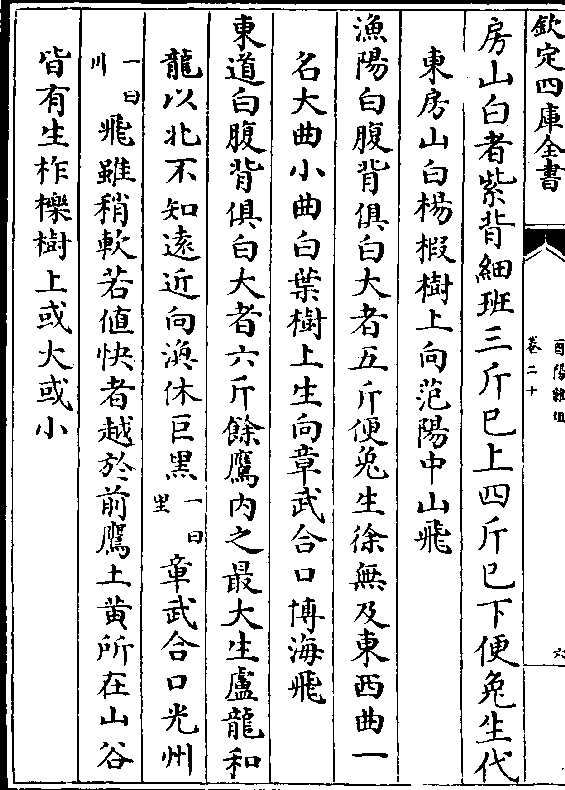 欽定四庫全書
酉陽雜俎
卷二十
六
房山白者紫背細班三斤巳上四斤巳下便兔生代
東房山白楊椵樹上向范陽中山飛
漁陽白腹背俱白大者五斤便兔生徐無及東西曲一
名大曲小曲白葉樹上生向章武合口博海飛
東道白腹背俱白大者六斤餘鷹内之最大生盧龍和
龍以北不知遠近向渙休巨黑一曰里章武合口光州
一曰川飛雖稍軟若値快者越於前鷹土黄所在山谷
皆有生柞櫟樹上或大或小